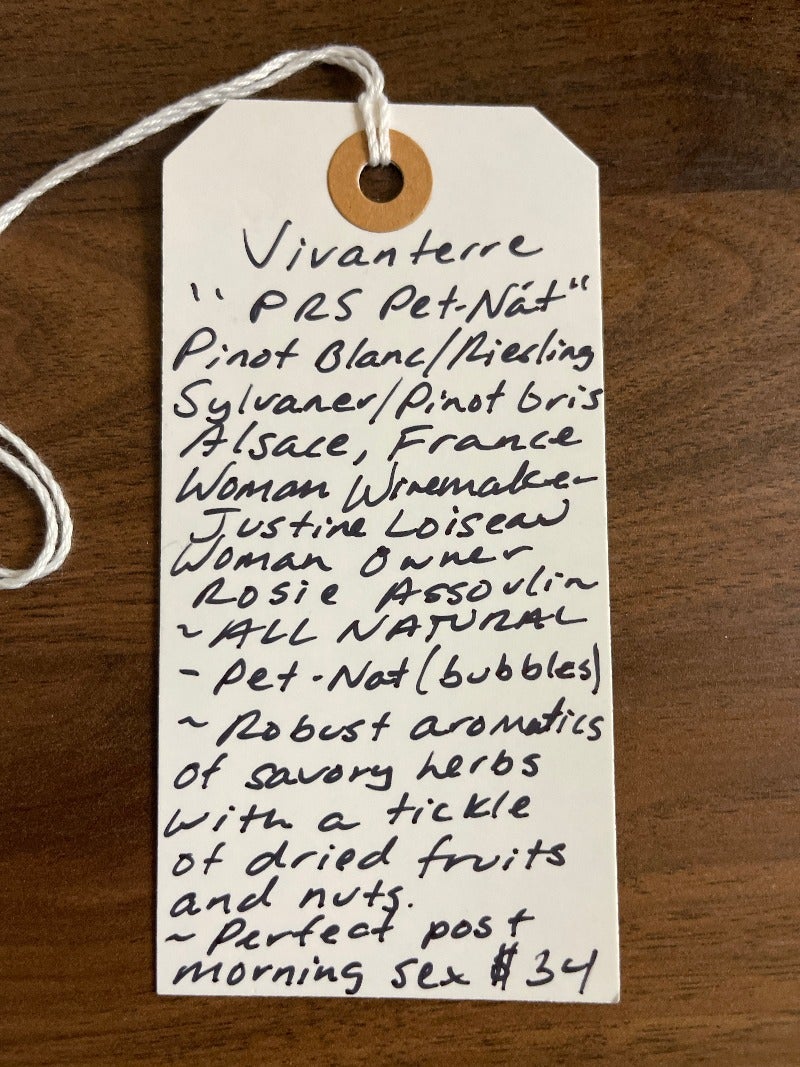 Vivanterre
"PRS Pet-Nat"
Pinot Blanc/Riesling
Sylvaner/Pinot Gris
Alsace, France
Woman Winemaker
Justine Loiseau
Woman Owner
Rosie Assoulin
~ALL NATURAL
- Pet-Nat (bubbles)
~Robust aromatics
of savory herbs
with a tickle
of dried fruits
and nuts.
~Perfect post
morning sex $34